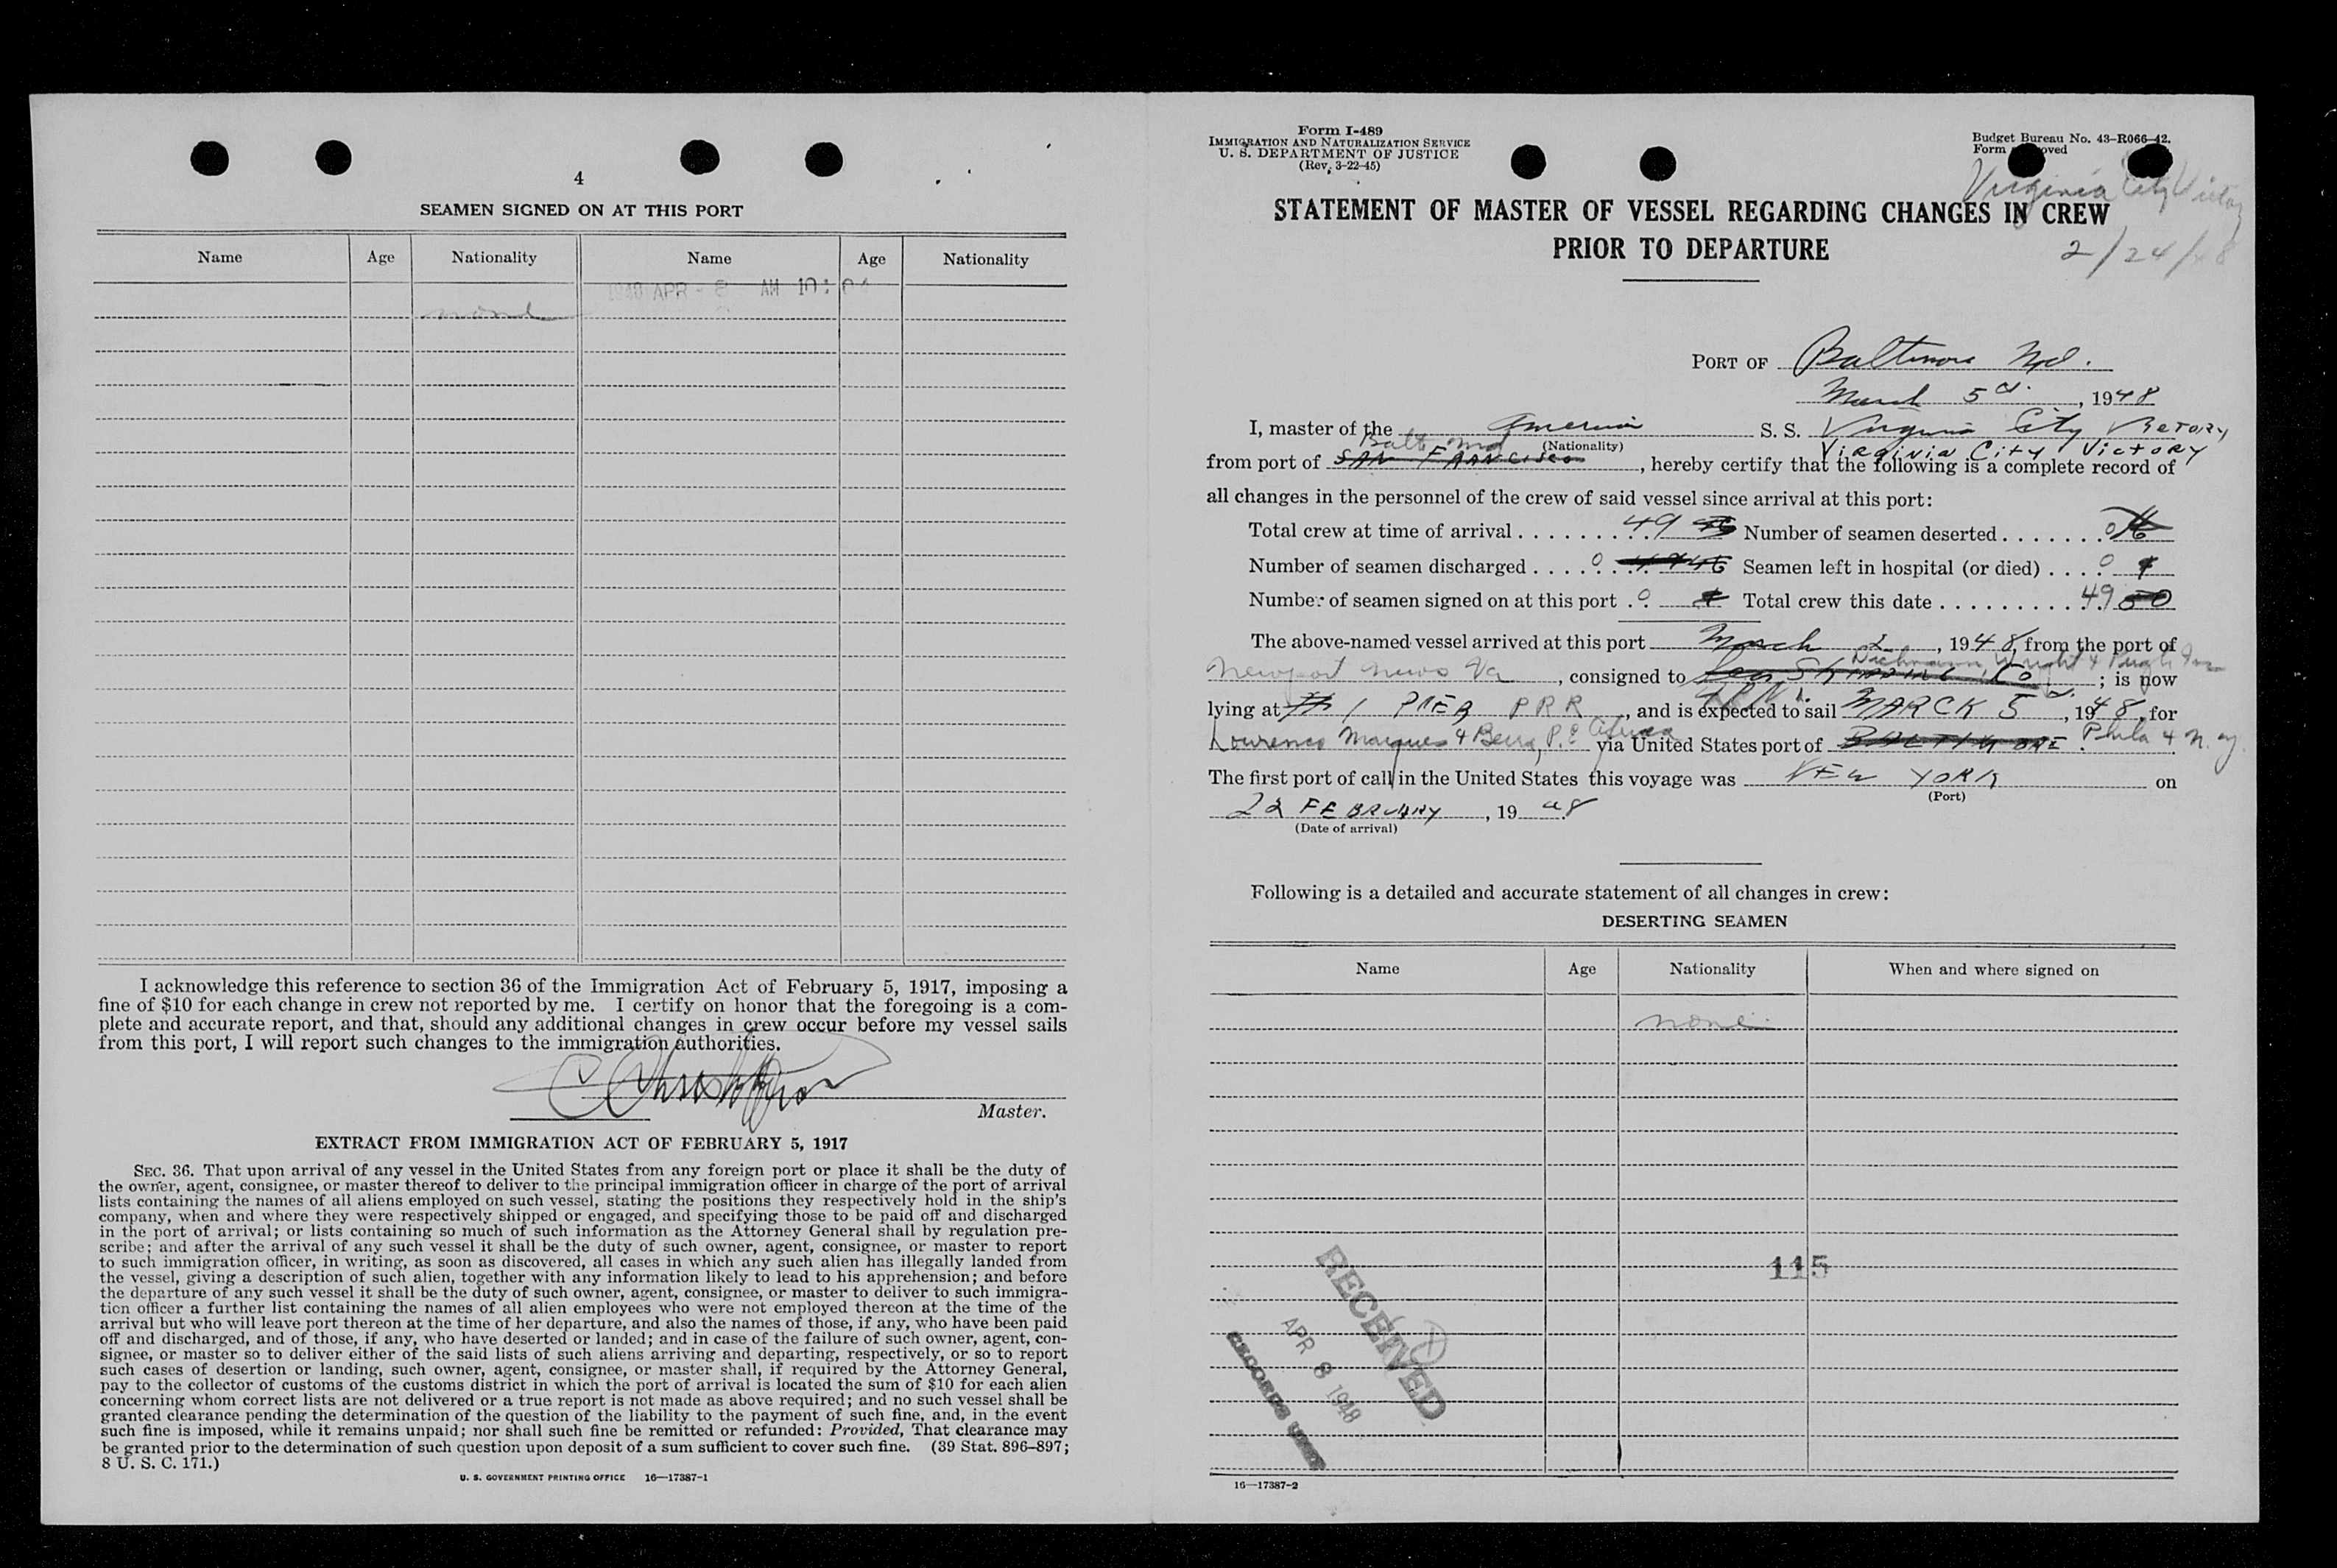 4
SEAMEN SIGNED ON AT THIS PORT
Name Age Nationality Name Age Nationality
APR - 8 AM
none
I acknowledge this reference to section 36 of the Immigration Act of February 5, 1917, imposing a
fine of $10 for each change in crew not reported by me. I certify on honor that the foregoing is a com-
plete and accurate report, and that, should any additional changes in crew occur before my vessel sails
from this port, I will report such changes to the immigration authorities.
Master.
EXTRACT FROM IMMIGRATION ACT OF FEBRUARY 5, 1917
SEC. 36. That upon arrival of any vessel in the United States from any foreign port or place it shall be the duty of
the owner, agent, consignee, or master thereof to deliver to the principal immigration officer in charge of the port of arrival
lists containing the names of all aliens employed on such vessel, stating the positions they respectively hold in the ship's
company, when and where they were respectively shipped or engaged, and specifying those to be paid off and discharged
in the port of arrival; or lists containing so much of such information as the Attorney General shall by regulation pre-
scribe; and after the arrival of any such vessel it shall be the duty of such owner, agent, consignee, or master to report
to such immigration officer, in writing, as soon as discovered, all cases in which any such alien has illegally landed from
the vessel, giving a description of such alien, together with any information likely to lead to his apprehension; and before
the departure of any such vessel it shall be the duty of such owner, agent, consignee, or master to deliver to such immigra-
tion officer a further list containing the names of all alien employees who were not employed thereon at the time of the
arrival but who will leave port thereon at the time of her departure, and also the names of those, if any, who have been paid
off and discharged, and of those, if any, who have deserted or landed; and in case of the failure of such owner, agent, con-
signee, or master so to deliver either of the said lists of such aliens arriving and departing, respectively, or so to report
such cases of desertion or landing, such owner, agent, consignee, or master shall, if required by the Attorney General,
pay to the collector of customs of the customs district in which the port of arrival is located the sum of $10 for each alien
concerning whom correct lists are not delivered or a true report is not made as above required; and no such vessel shall be
granted clearance pending the determination of the question of the liability to the payment of such fine, and, in the event
such fine is imposed, while it remains unpaid; nor shall such fine be remitted or refunded: Provided, That clearance may
be granted prior to the determination of such question upon deposit of a sum sufficient to cover such fine. (39 Stat. 896–897;
8 U. S. C. 171.)
U. S. GOVERNMENT PRINTING OFFICE 16—17387-1
Form I-489
IMMIGRATION AND NATURALIZATION SERVICE
U. S. DEPARTMENT OF JUSTICE
(Rev. 3-22-45)
Budget Bureau No. 43–R066–42.
Form
Virginia City Victory
2/24/48
STATEMENT OF MASTER OF VESSEL REGARDING CHANGES IN CREW
PRIOR TO DEPARTURE
PORT OF Baltimore Md.
March 5 , 1948
I, master of the American S. S. Virginia City Victory
(Nationality) Virginia City Victory
Balto Md
from port of SAN FRANCISCO , hereby certify that the following is a complete record of
all changes in the personnel of the crew of said vessel since arrival at this port:
Total crew at time of arrival 49 Number of seamen deserted 0
Number of seamen discharged 0 Seamen left in hospital (or died) 0
Number of seamen signed on at this port 0 Total crew this date 49 50
The above-named vessel arrived at this port March 2 , 1948, from the port of
Newport News Va , consigned to Dichmann, Wright & Pugh Inc ; is now
lying at # 1 PIER PRR , and is expected to sail MARCH 5 , 1948, for
Lourenco Marques & Beira, P. E Africa via United States port of BALTIMORE Phila & N. Y.
The first port of call in the United States this voyage was NEW YORK on
(Port)
22 FEBRUARY , 19 48
(Date of arrival)
Following is a detailed and accurate statement of all changes in crew:
DESERTING SEAMEN
Name Age Nationality When and where signed on
none
115
RECEIVED
APR 8 1948
RECORDS
16—17387-2